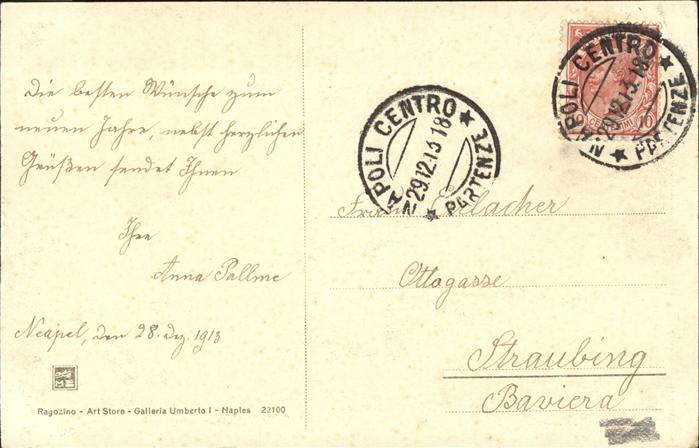 Die besten Wünsche zum
neuen Jahre, nebst herzlichen
Grüßen sendet Ihnen
Ihre
Anna Pallme
Neapel, den 28. Dez. 1913
Ragozino - Art Store - Galleria Umberto I - Naples 22100
NAPOLI CENTRO
29.12.13 18
★ PARTENZE ★
NAPOLI CENTRO
29.12.13 18
★ PARTENZE ★
10
Erlacher
Ottogasse
Straubing
Baviera